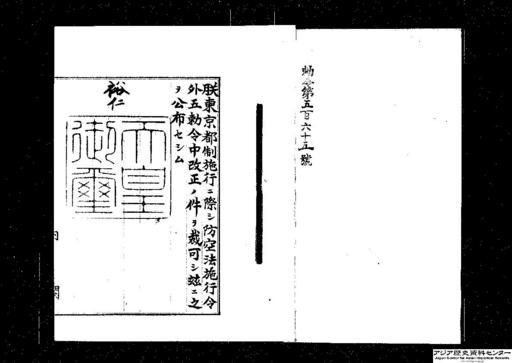 勅令第五百六十五號
朕東京都制施行ニ際シ防空法施行令
外五勅令中改正ノ件ヲ裁可シ玆ニ之
ヲ公布セシム
裕仁
天皇
御璽
内閣
アジア歴史資料センター
Japan Center for Asian Historical Records